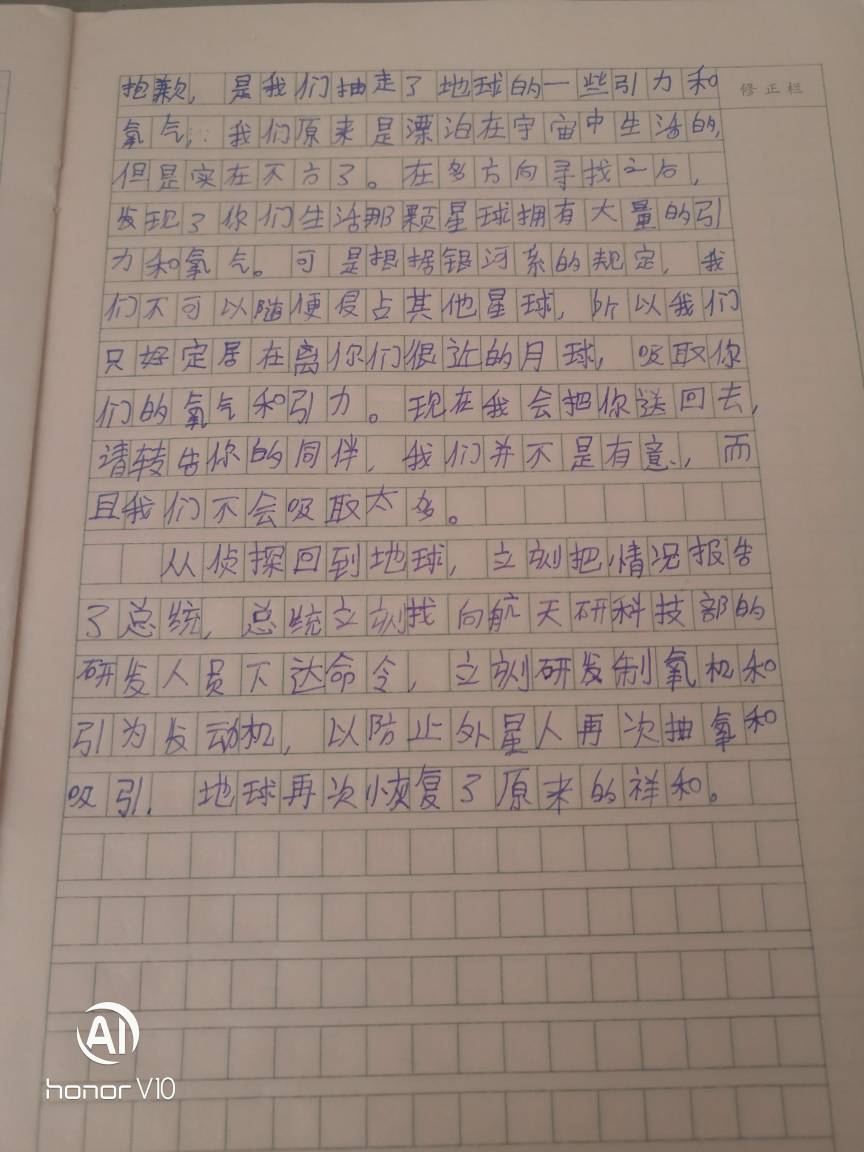 抱歉，是我们抽走了地球的一些引力和
修正栏
氧气，我们原来是漂泊在宇宙中生活的，
但是实在不方了。在多方向寻找之后，
发现了你们生活那颗星球拥有大量的引
力和氧气。可是根据银河系的规定，我
们不可以随便侵占其他星球，所以我们
只好定居在离你们很近的月球，吸取你
们的氧气和引力。现在我会把你送回去，
请转告你的同伴，我们并不是有意，而
且我们不会吸取太多。
从侦探回到地球，立刻把情况报告
了总统，总统立刻找向航天研科技部的
研发人员下达命令，立刻研发制氧机和
引为发动机，以防止外星人再次抽氧和
吸引．地球再次恢复了原来的祥和。
AI
honor V10